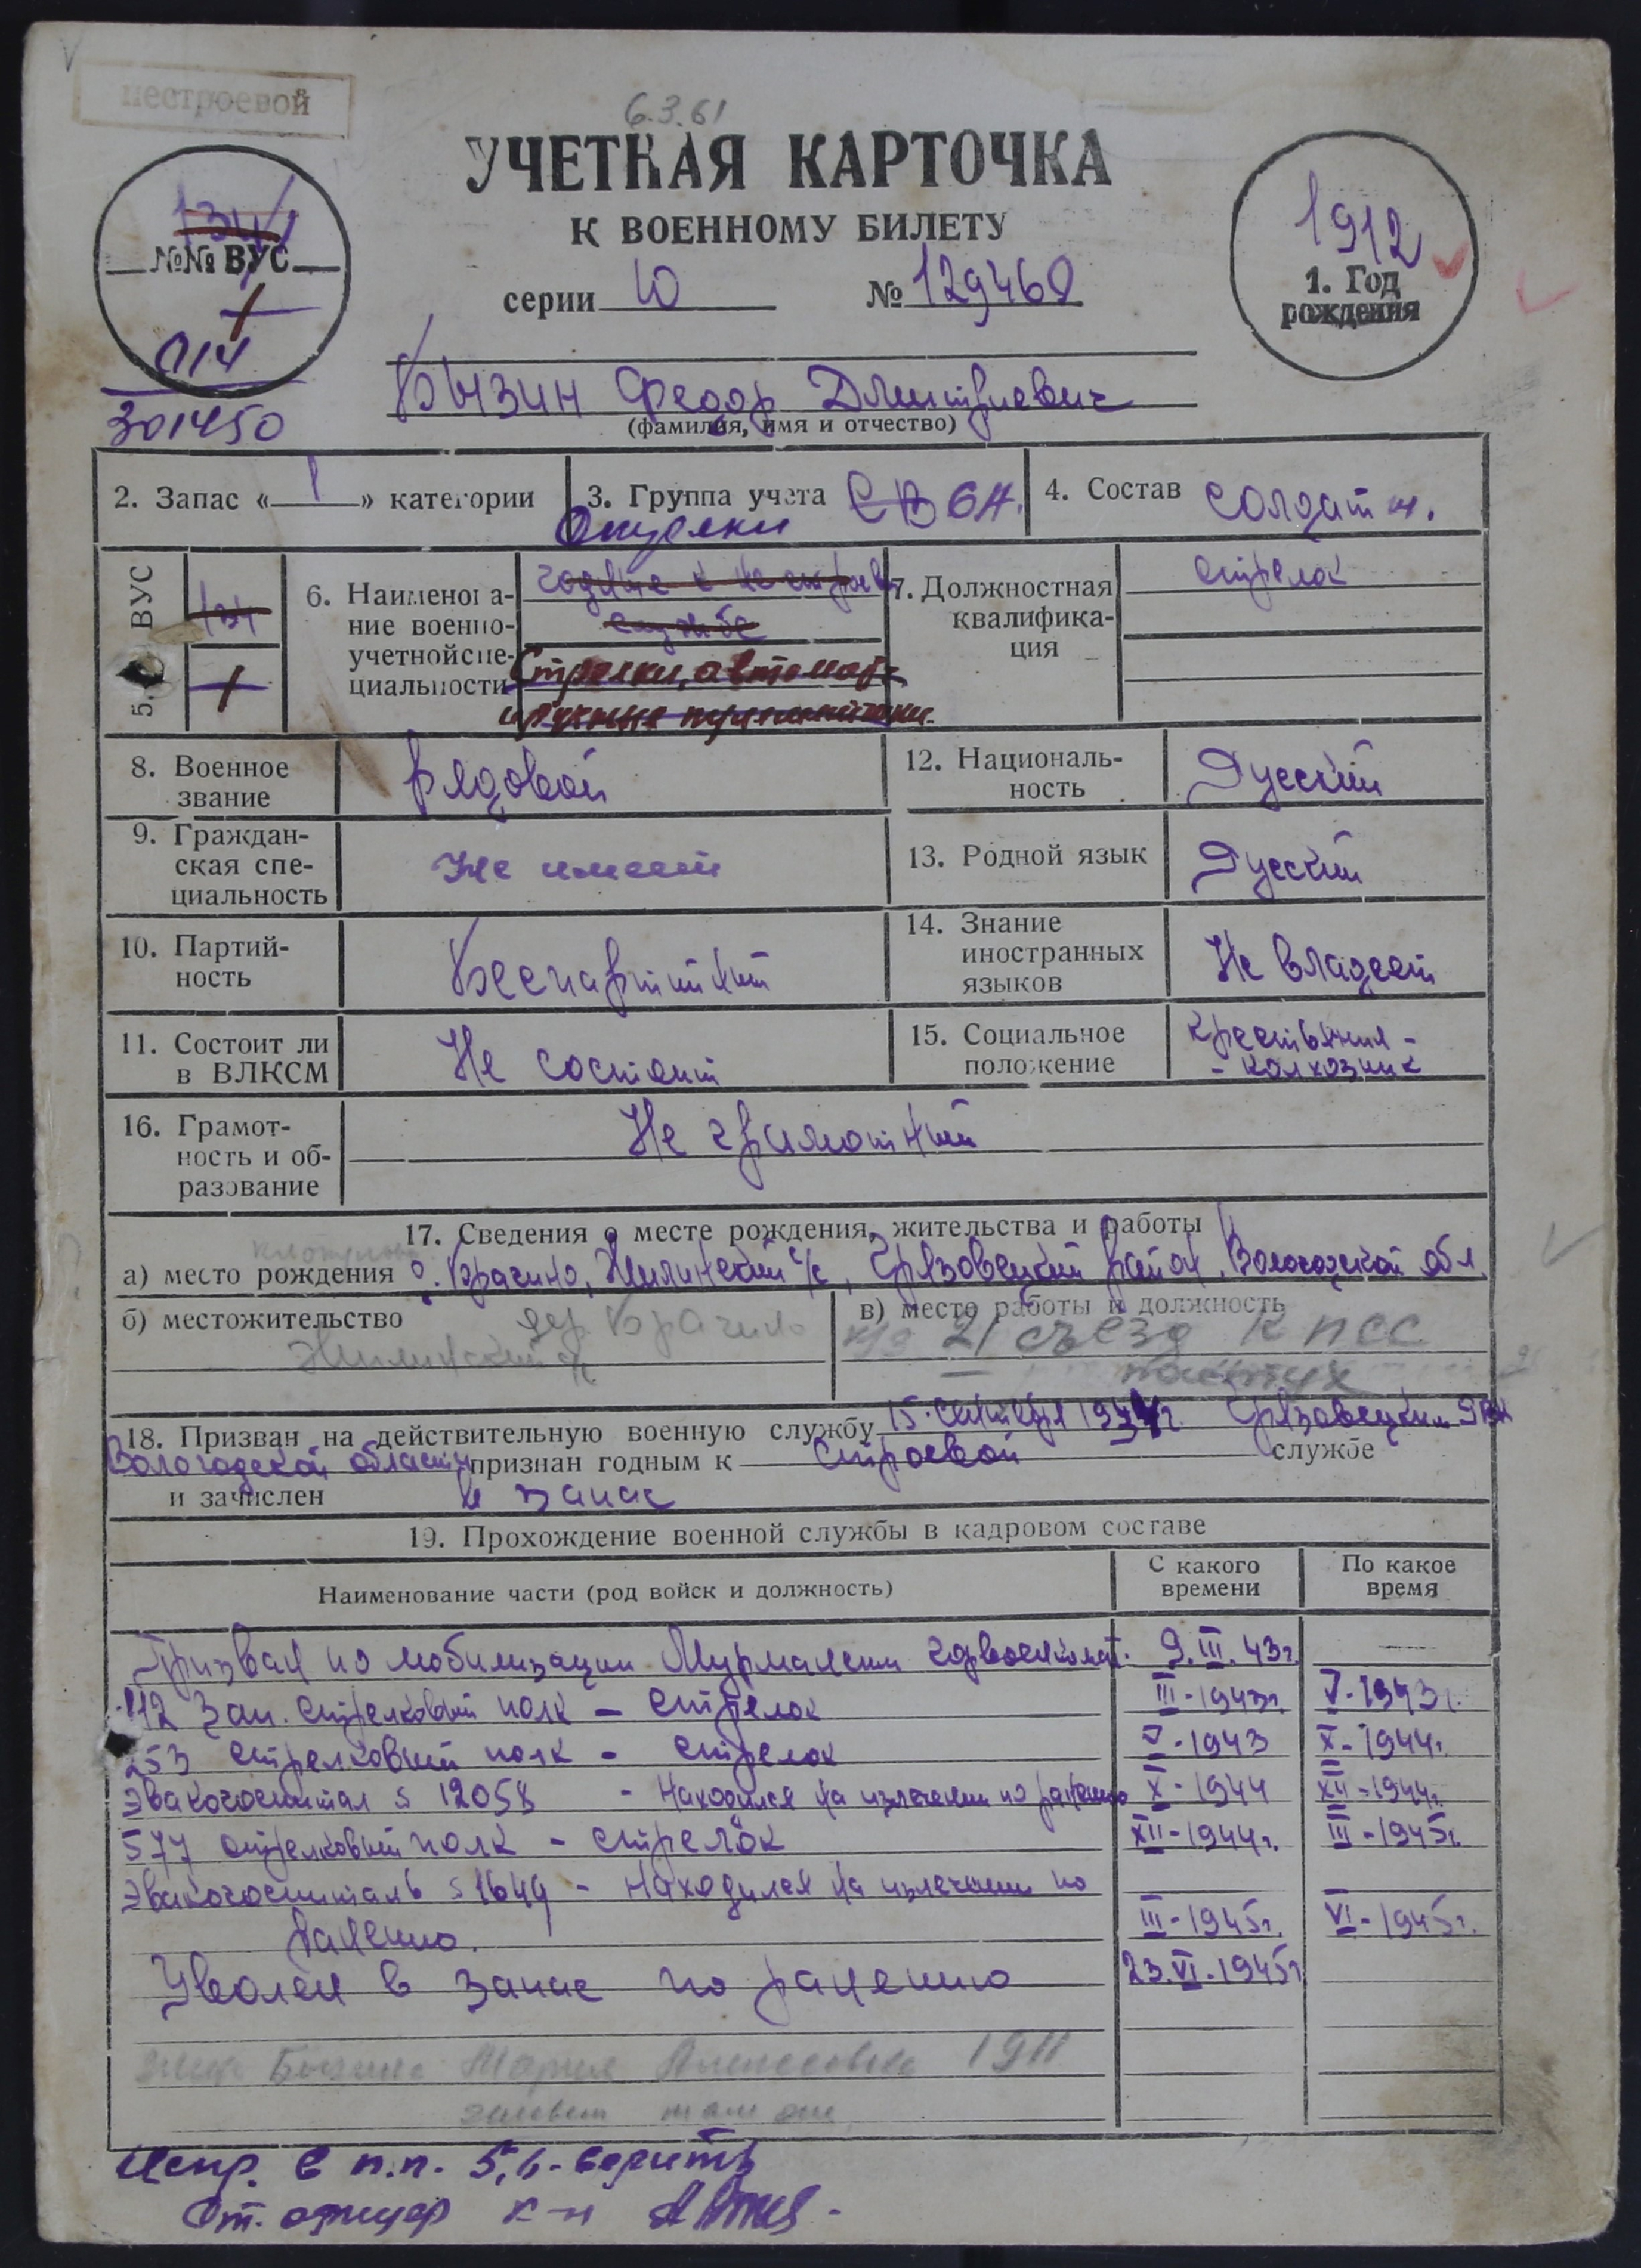 нестроевой
6.3.61
УЧЕТНАЯ КАРТОЧКА
К ВОЕННОМУ БИЛЕТУ
серии Ю № 129460
134
№№ ВУС
1
014
301450
1912
1. Год
рождения
Бызин Федор Дмитриевич
(фамилия, имя и отчество)
2. Запас « 1 » категории
3. Группа учета СВ СА.
4. Состав солдат и.
5. ВУС
134
1
6. Наименова-
ние военно-
учетной спе-
циальности
годные к не строев
службе
Стрелки, автомат.
и ручные пулеметчики.
7. Должностная
квалифика-
ция
стрелок
8. Военное
звание
Рядовой
12. Националь-
ность
Русский
9. Граждан-
ская спе-
циальность
Не имеет
13. Родной язык
Русский
10. Партий-
ность
Беспартийный
14. Знание
иностранных
языков
Не владеет
11. Состоит ли
в ВЛКСМ
Не состоит
15. Социальное
положение
Крестьянин -
- колхозник
16. Грамот-
ность и об-
разование
Не грамотный
17. Сведения о месте рождения, жительства и работы
а) место рождения д. Брагино, Жилинский с/с, Грязовецкий район, Вологодской обл
б) местожительство дер. Брагино
Жилинский с/с
в) место работы и должность
к/з 21 съезд КПСС
пастух
18. Призван на действительную военную службу 15. сентября 1934г. Грязовецким РВК
Вологодской области признан годным к строевой службе
и зачислен в запас
19. Прохождение военной службы в кадровом составе
Наименование части (род войск и должность)
С какого
времени
По какое
время
Призван по мобилизации Мурманским горвоенкомат. 9.III.43г.
112 Зап. стрелковый полк - стрелок III-1943г. V-1943г.
253 стрелковый полк - стрелок V-1943 X-1944г.
Эвакогоспитал 12058 - Находился на излечении по ранению X-1944 XII-1944г.
577 стрелковый полк - стрелок XII-1944г. III-1945г.
Эвакогоспиталь 1649 - Находился на излечении по
ранению. III-1945г. VI-1945г.
Уволен в запас по ранению 23.VI.1945г
жена Бызина Мария Алексеевна 1911
живет там же
Испр. в п.п. 5, 6 - верить
Ст. офицер к-н